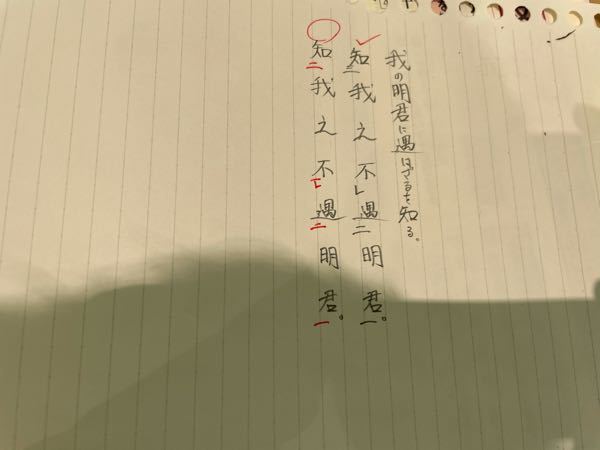 我の明君に遇はざるを知る。
知三我之不レ遇二明君一。
知二我之不レ遇二明君一。